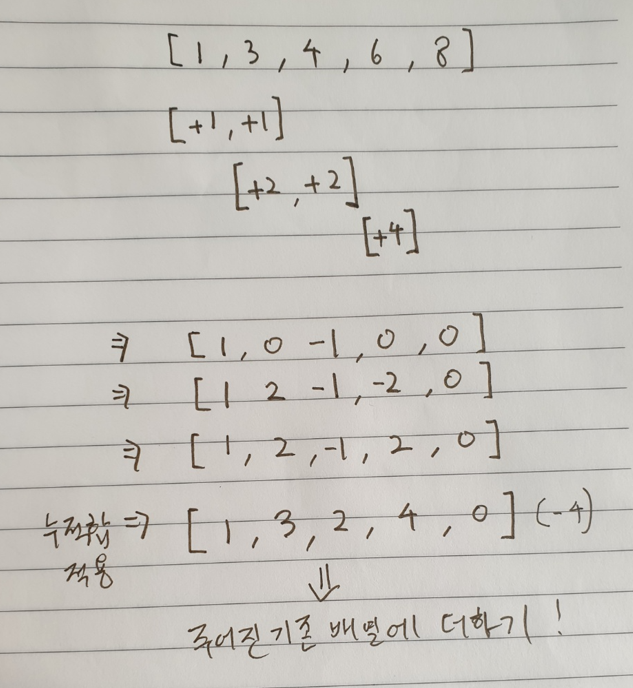 [1, 3, 4, 6, 8]
[+1, +1]
[+2, +2]
[+4]
⇒ [1, 0 -1, 0, 0]
⇒ [1 2 -1, -2, 0]
⇒ [1, 2, -1, 2, 0]
누적합 ⇒ [1, 3, 2, 4, 0] (-4)
적용
⇓
주어진 기존 배열에 더하기!